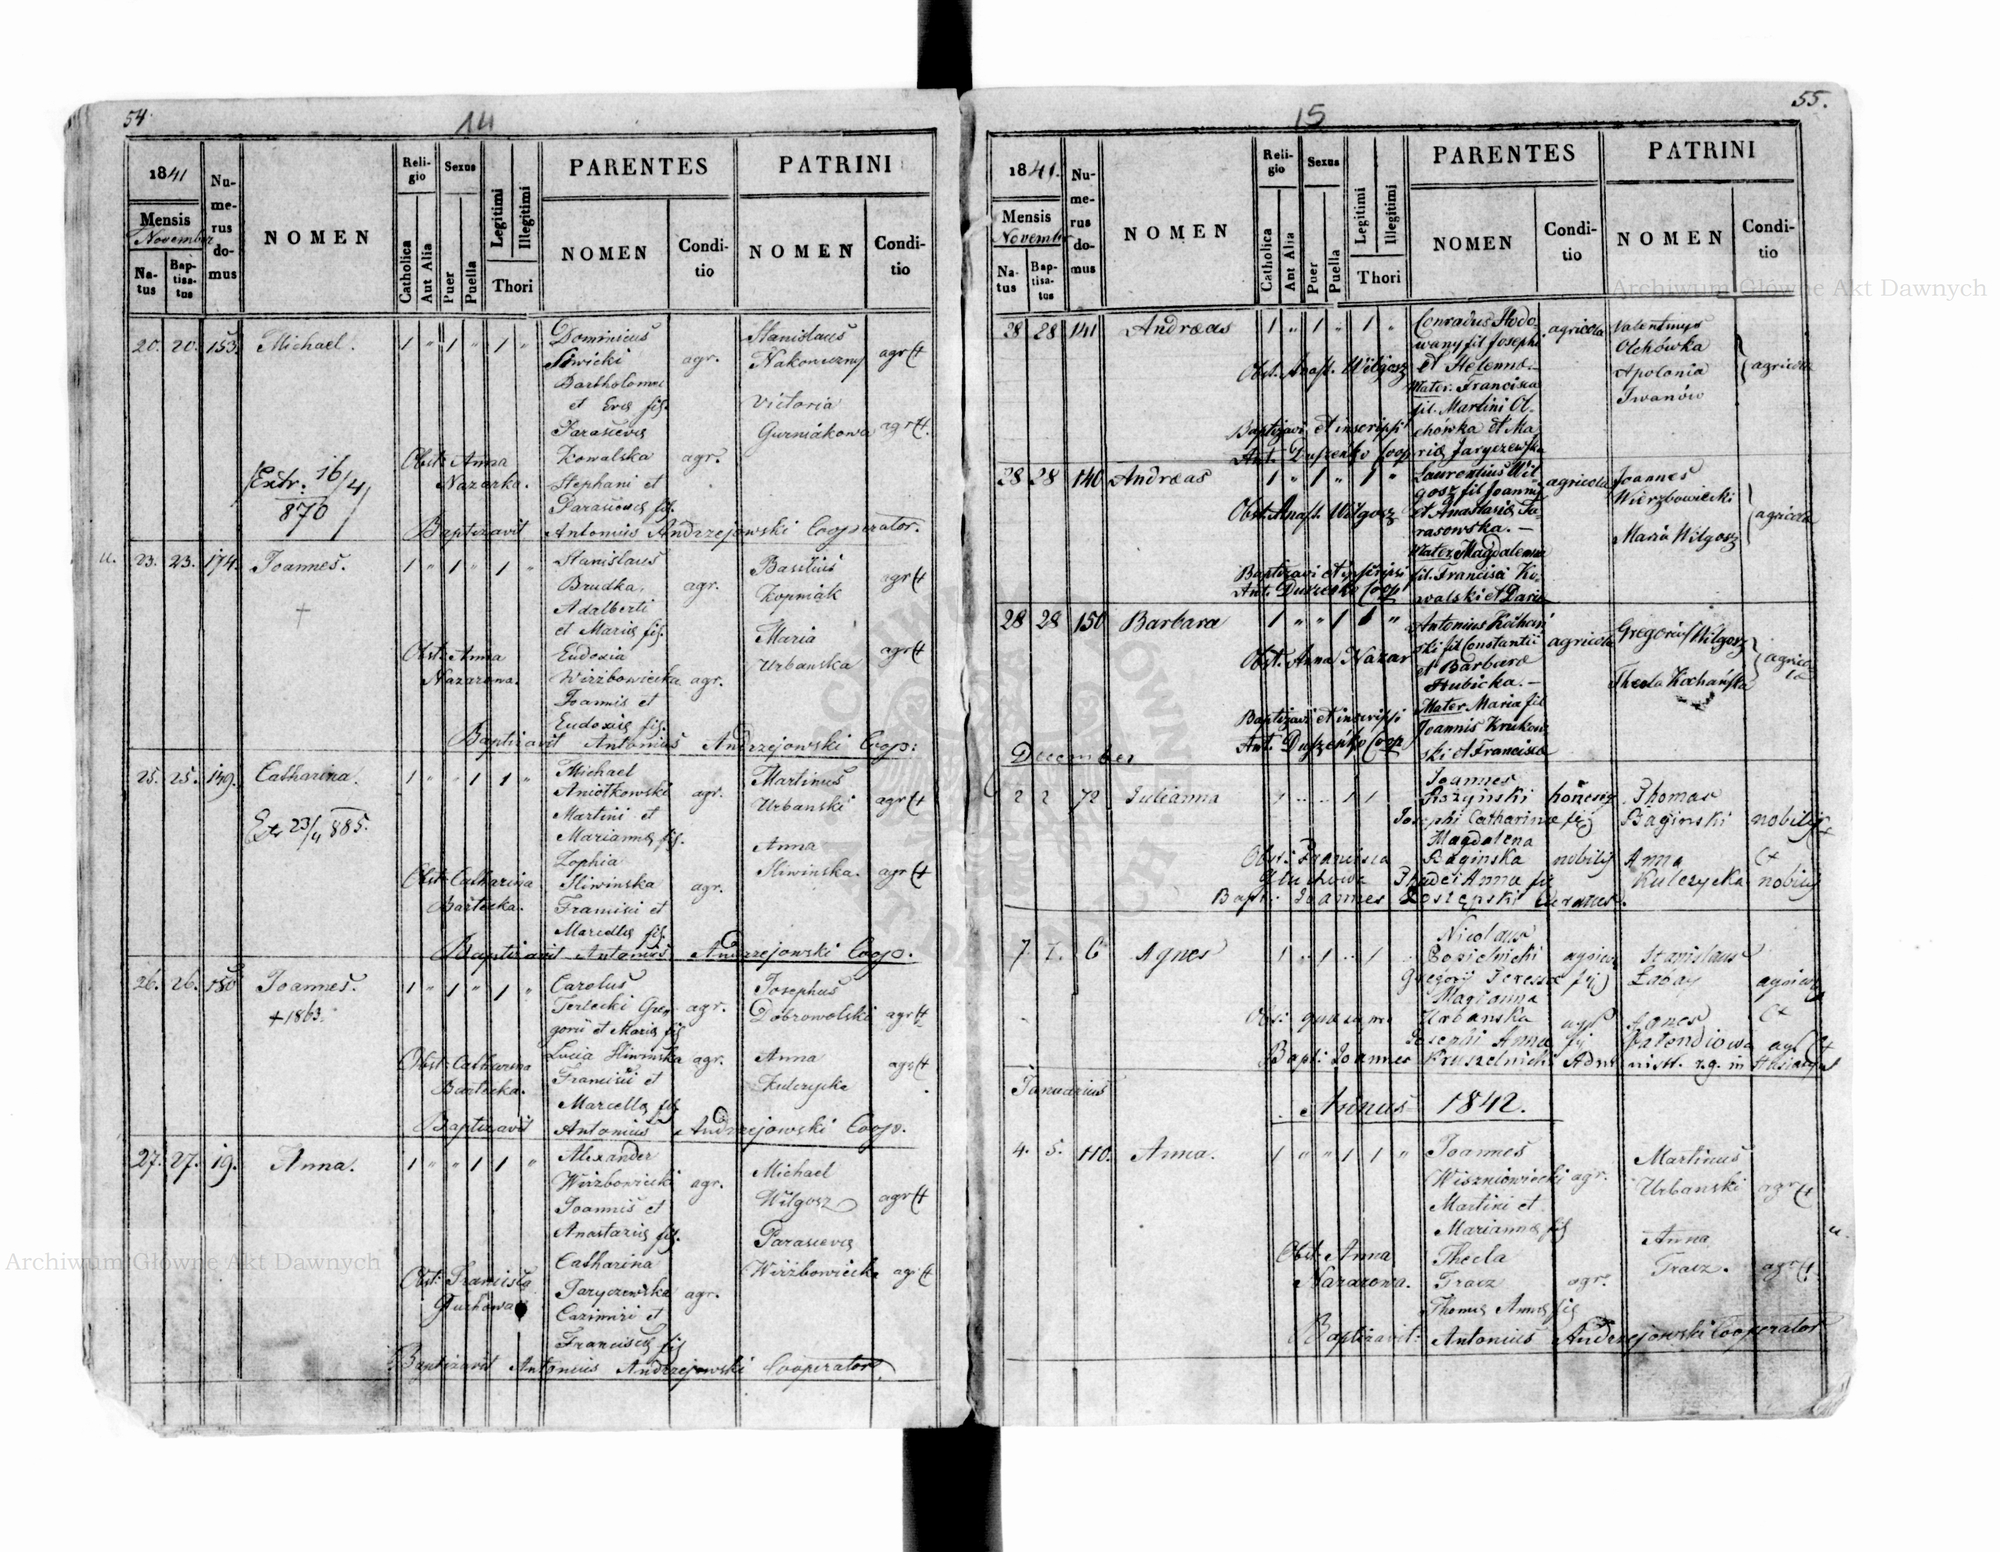 54
14
1841
Mensis
November
Natus
Baptisatus
Numerus domus
NOMEN
Religio
Catholica
Aut Alia
Sexus
Puer
Puella
Legitimi
Illegitimi
Thori
PARENTES
NOMEN
Conditio
PATRINI
NOMEN
Conditio
20. 20. 153. Michael. 1 " 1 " 1 "
Dominicus
Siwicki agr.
Bartholomei
et Evæ fil.
Parascevia
Kowalska agr.
Stephani et
Parascevæ fil.
Stanislaus
Nakoneczny agr
Victoria
Gurniakowa agr
Obst: Anna
Nazarka.
Extr. 16/4
870
Baptizavit Antonius Andrzejowski Cooperator.
23. 23. 174. Joannes. 1 " 1 " 1 "
Stanislaus
Brudka, agr.
Adalberti
et Mariæ fil.
Eudoxia
Wirzbowiecka agr.
Joannis et
Eudoxiæ fil.
Basilius
Kopniak agr
Maria
Urbanska agr
Obst: Anna
Nazarowa.
Baptizavit Antonius Andrzejowski Coop:
25. 25. 149. Catharina. 1 " " 1 1 "
Michael
Aniołkowski agr.
Martini et
Mariannæ fil.
Zophia
Sliwinska agr.
Francisci et
Marcellæ fil.
Martinus
Urbanski agr
Anna
Sliwinska. agr
Extr 23/4 885.
Obst: Catharina
Bartecka.
Baptizavit Antonius Andrzejowski Coop.
26. 26. 180 Joannes. 1 " 1 " 1 "
+ 1863.
Carolus
Terlecki Gre- agr.
gorii et Mariæ fil
Lucia Sliwinska agr.
Francisci et
Marcellæ fil
Josephus
Dobrowolski agr
Anna
Kulczycka agr
Obst: Catharina
Bartecka.
Baptizavit Antonius Andrzejowski Coop.
27. 27. 19. Anna. 1 " " 1 1 "
Alexander
Wirzbowiecki agr.
Joannis et
Anastasiæ fil.
Catharina
Jaryczewska agr.
Cazimiri et
Franciscæ fil
Michael
Wilgosz agr
Parascevia
Wirzbowiecka agr
Obst: Francisca
Baptizavit Antonius Andrzejowski Cooperator.
55.
15
1841.
Mensis
November
Natus
Baptisatus
Numerus domus
NOMEN
Religio
Catholica
Aut Alia
Sexus
Puer
Puella
Legitimi
Illegitimi
Thori
PARENTES
NOMEN
Conditio
PATRINI
NOMEN
Conditio
28 28 141 Andreas 1 " 1 " 1 "
Conradus Hodo- agricola
wany fil Josephi
et Helenna
Mater. Francisca
fil. Martini Ol-
chówka et Ma-
riæ Jaryczewska
Valentinus
Olchówka
Apolonia
Iwanów
agricola
Obst. Anast. Wilgosz
Baptizavi et inscripsi
Ant. Duszeńko Coop
28 28 140 Andreas 1 " 1 " 1 "
Laurentius Wil- agricola
gosz fil Joannis
et Anastasiæ Ta-
rasowska. —
Mater Magdalena
fil. Francisci Ko-
walski et Dariæ
Joannes
Wierzbowiecki
Maria Wilgosz
agricola
Obst. Anast. Wilgosz
Baptizavi et inscripsi
Ant. Duszeńko Coop
28 28 150 Barbara 1 " " 1 1 "
Antonius Kochań-
ski fil Constantii agricola
et Barbaræ
Hubicka. —
Mater Maria fil
Joannis Krukow-
ski et Francisca
Gregorius Wilgosz
Thecla Kochańska
agricola
Obst. Anna Nazar
Baptizavi et inscripsi
Ant. Duszeńko Coop
December
2 2 72 Julianna 1 " " 1 1
Joannes
Rozynski
Josephi Catharinæ fil
Magdalena
Baginska nobilis
Thadei Anna fil
Thomas
Baginski nobilis
Anna
Kulczycka nobilis
Obst: Francisca
Głuchowa
Bapt: Joannes
7. 7. 6 Agnes 1
Nicolaus
Gregorij Teressæ fil
Marianna
Urbanska agr
Josephi Anna fil
Stanislaus
Łabay agricola
Agnes
agr
Bapt: Joannes Kruszelnicki Admi nistr. r.g. in
Januarius
Annus 1842.
4. 5. 110. Anna. 1 " " 1 1 "
Joannes
Wiszniowiecki agr.
Martini et
Mariannæ fil
Thecla
Tracz agr.
Thomæ Annæ fil
Martinus
Urbanski agr
Anna
Tracz. agr
Obst: Anna
Nazarowa.
Baptizavit: Antonius Andrzejowski Cooperator
Archiwum Główne Akt Dawnych
Archiwum Główne Akt Dawnych